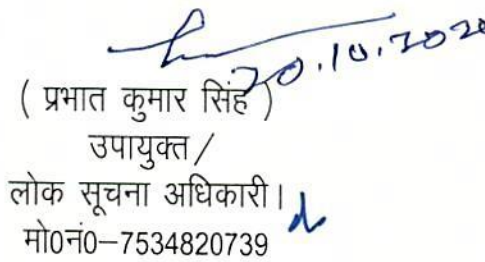 20.10.2020
( प्रभात कुमार सिंह )
उपायुक्त /
लोक सूचना अधिकारी।
मो0नं0–7534820739